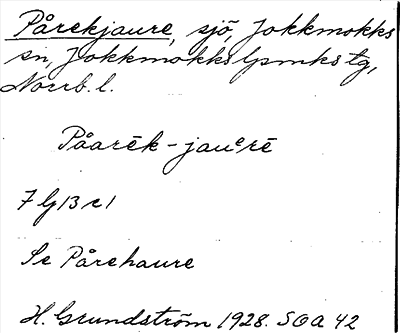 Pårekjaure, sjö, Jokkmokks
sn, Jokkmokks lpmks tg,
Norrb. l.
Påarēk-jauᵉrē
7 g 13 c 1
Se Pårehaure
H. Grundström 1928. SOA 42